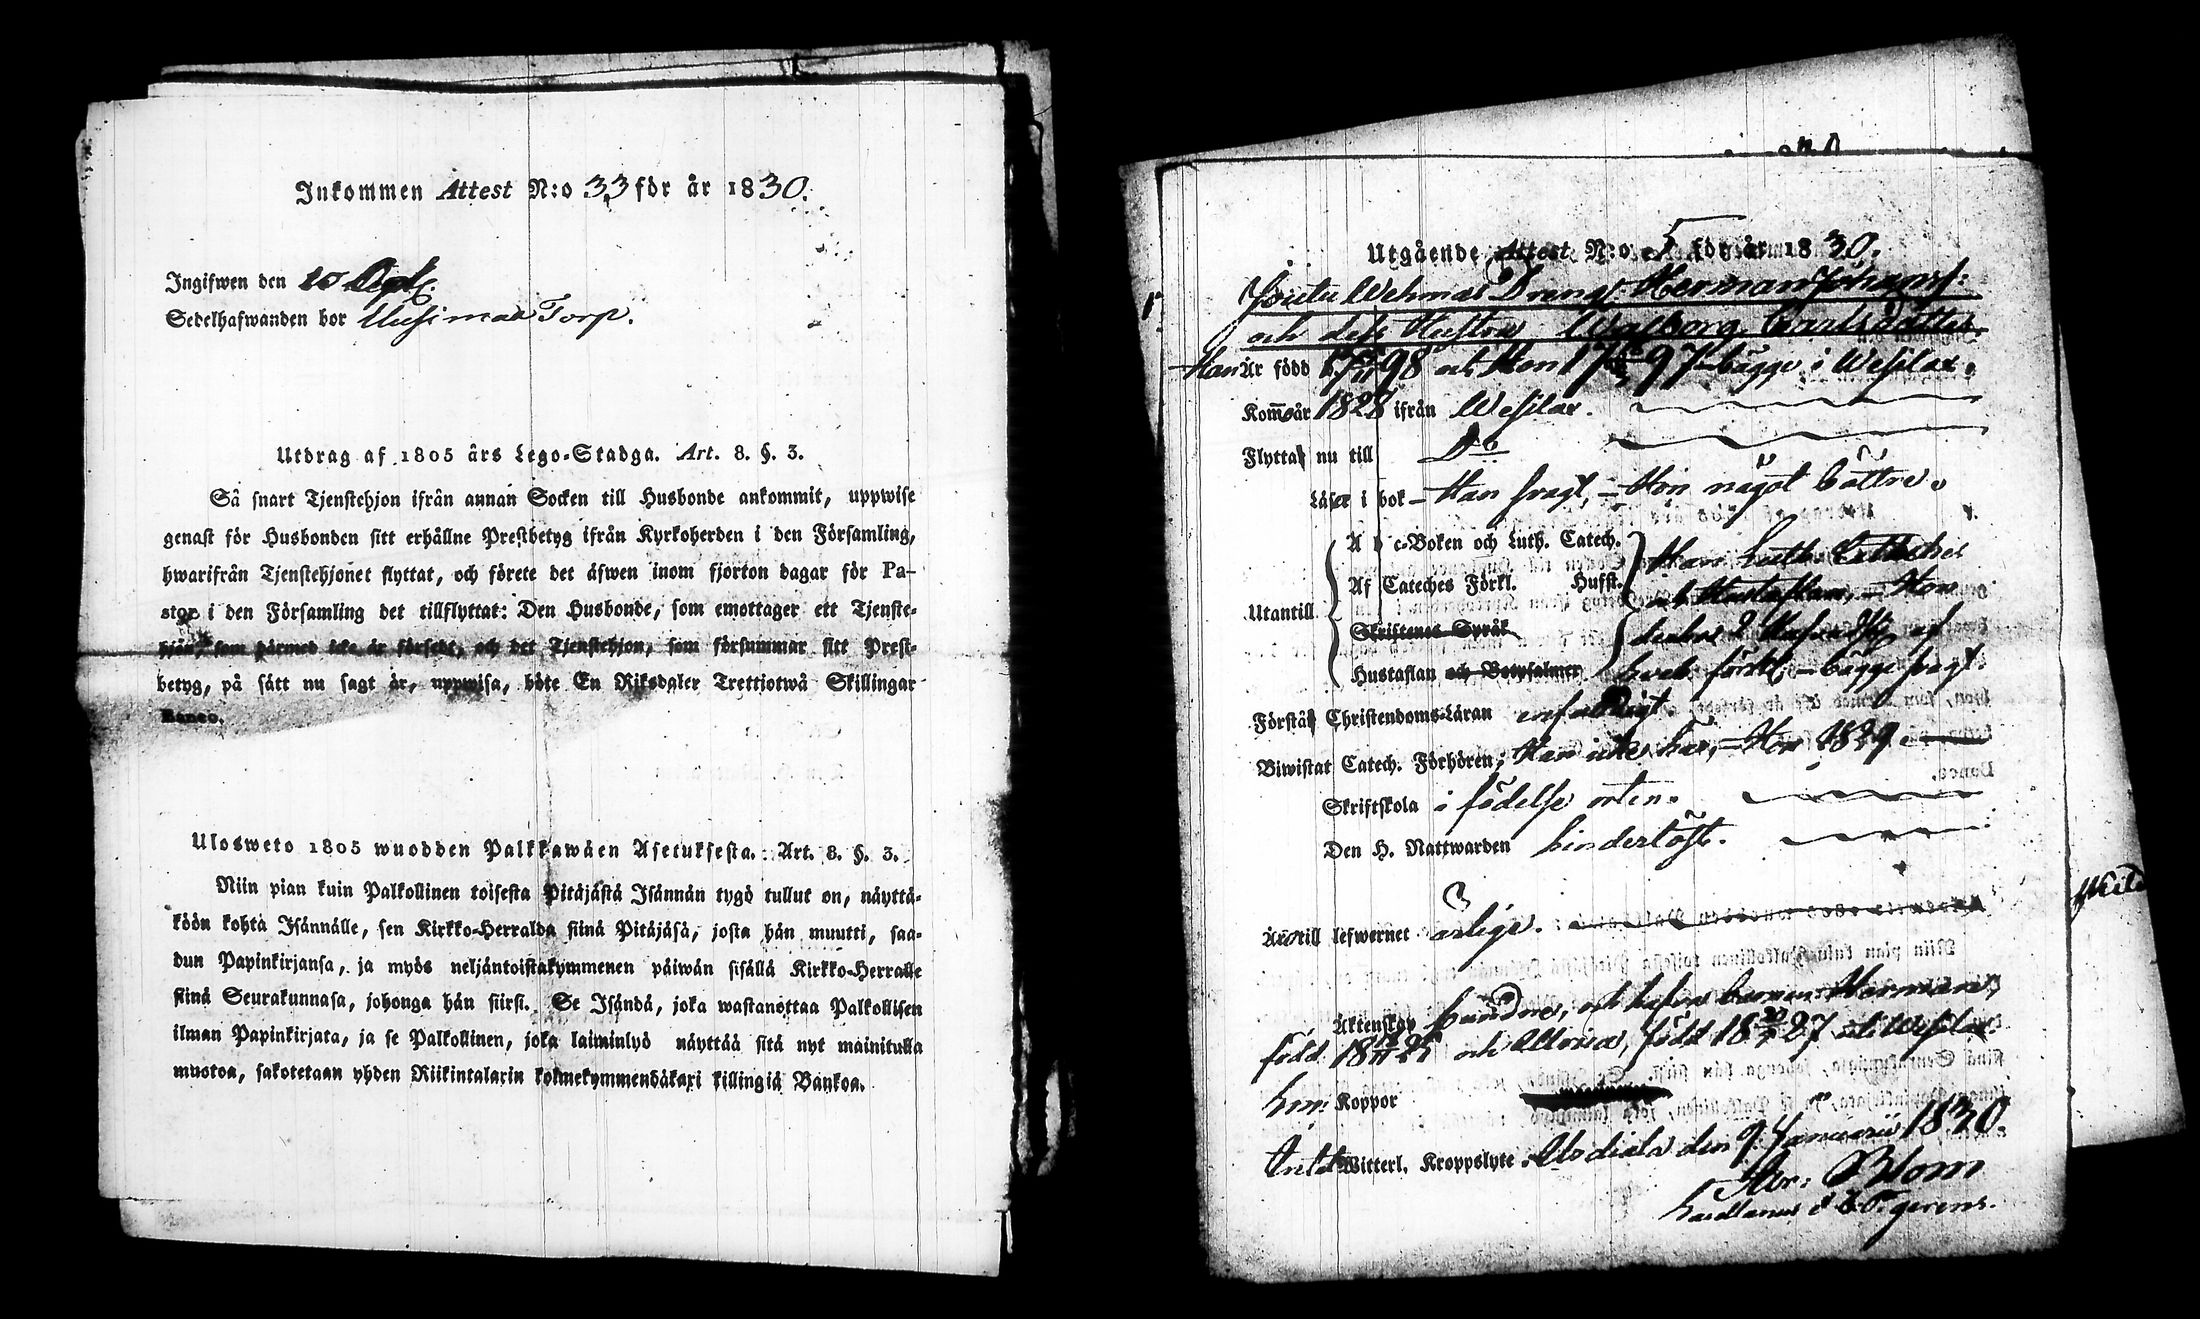 Inkommen Attest N:o 33 för år 1830.
Ingifwen den 10
Sedelhafwanden bor Uusimaa Torp.
Utdrag af 1805 års Lego-Stadga. Art. 8. §. 3.
Så snart Tjenstehjon ifrån annan Socken till Husbonde ankommit, uppwise
genast för Husbonden sitt erhållne Prestbetyg ifrån Kyrkoherden i den Församling,
hwarifrån Tjenstehjonet flyttat, och förete det äfwen inom fjorton dagar för Pa-
stor i den Församling det tillflyttat: Den Husbonde, som emottager ett Tjenste-
hjon, som därmed icke är försedt, och det Tjenstehjon, som försummar sitt Prest-
betyg, på sätt nu sagt är, uppwisa, böte En Riksdaler Trettiotwå Skillingar
Banco.
Ulosweto 1805 wuodden Palkkawäen Asetuksesta. Art. 8. §. 3.
Niin pian kuin Palkollinen toisesta Pitäjästä Isännän tygö tullut on, näyttä-
köön kohta Isännälle, sen Kirkko-Herralda siinä Pitäjäsä, josta hän muutti, saa-
dun Papinkirjansa, ja myös neljäntoistakymmenen päiwän sisällä Kirkko-Herralle
siinä Seurakunnasa, johonga hän siirsi. Se Isändä, joka wastanottaa Palkollisen
ilman Papinkirjata, ja se Palkollinen, joka laiminlyö näyttää sitä nyt mainitulla
muotoa, sakotetaan yhden Riikintalarin kolmekymmendäkaxi killingiä Bankoa.
Utgående Attest N:o 5 för år 1830.
Wehmas Dreng Herman Johansf:
och dess Hustru Walborg Carlsdotter.
Han Är född 17 98 och Hon 17 97 bägge i Wesilax.
Kom år 1828 ifrån Wesilax.
Flytta nu till Do
Läser i bok - Han svagt, - Hon något bättre.
A b c-Boken och Luth. Catech. Han Luth. Catheches
Af Cateches Förkl. Husf. och Hustaflan, - Hon
Utantill
Skriftenes Språk
Hustaflan och Botpsalmer förkl. - bägge svagt.
Förstå Christendoms-Läran enfaldigt.
Biwistat Catech. Förhören; Han icke här, - Hon 1829
Skriftskola i födelse orten.
Den H. Nattwarden hindertöst.
Äro till lefwernet ärlige.
Äktenskap bundne, och hafwa barnen: Herman,
född 18 25 och Maria, född 18 27 i Wesilax
Koppor
Witterl. Kroppslyte. Modiala den 9. Januarii 1830.
Abr: Blom